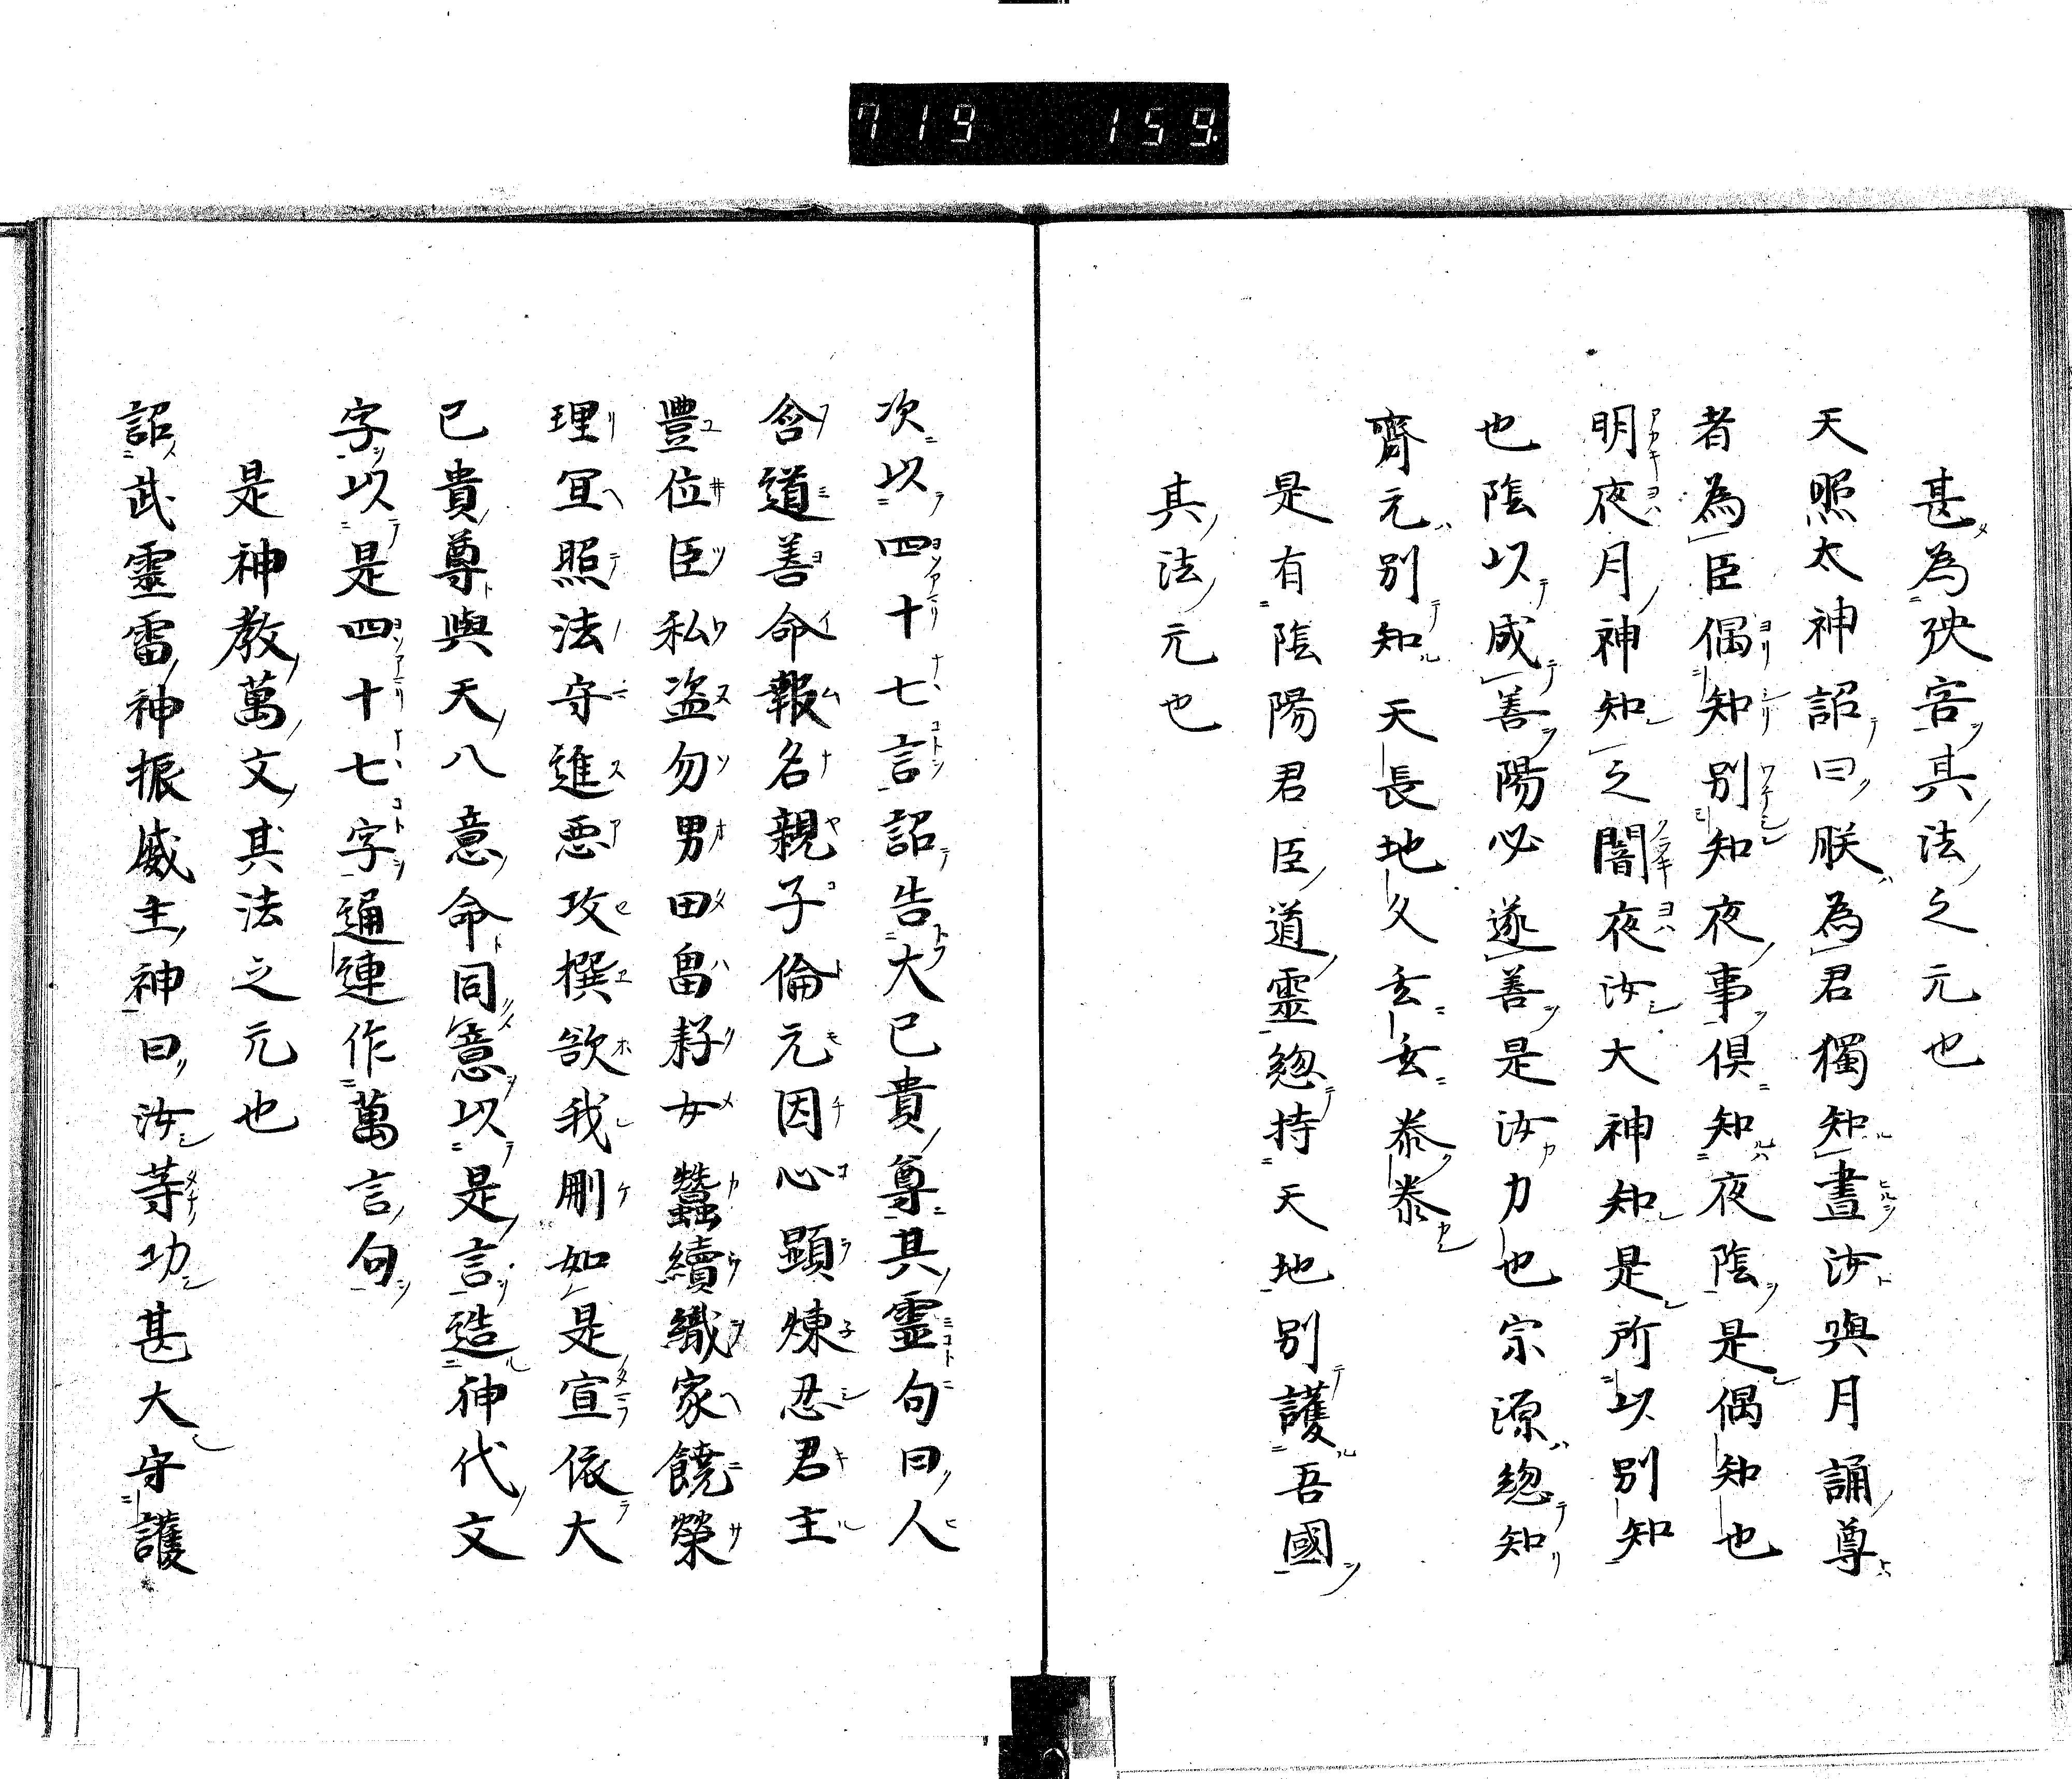 719 159
甚為殃害其法之元也
天照太神詔曰朕為君獨知晝汝與月誦尊
者為臣偶知別知夜事倶知夜陰是偶知也
明夜月神知之闇夜汝大神知是所以別知
也陰以成善陽必遂善是汝力也宗源總知
齊元別知天長地久玄玄泰泰
是有陰陽君臣道靈總持天地別護吾國
其法元也
次以四十七言詔告大已貴尊其靈句曰人
含道善命報名親子倫元因心顕煉忍君主
豐位臣私盗勿男田畠耔女蠶續織家饒榮
理宜照法守進悪攻撰欲我刪如是宣依大
已貴尊與天八意命同意以是言造神代文
字以是四十七字通連作萬言句
是神教萬文其法之元也
詔武靈雷神振威主神曰汝等功甚大守護